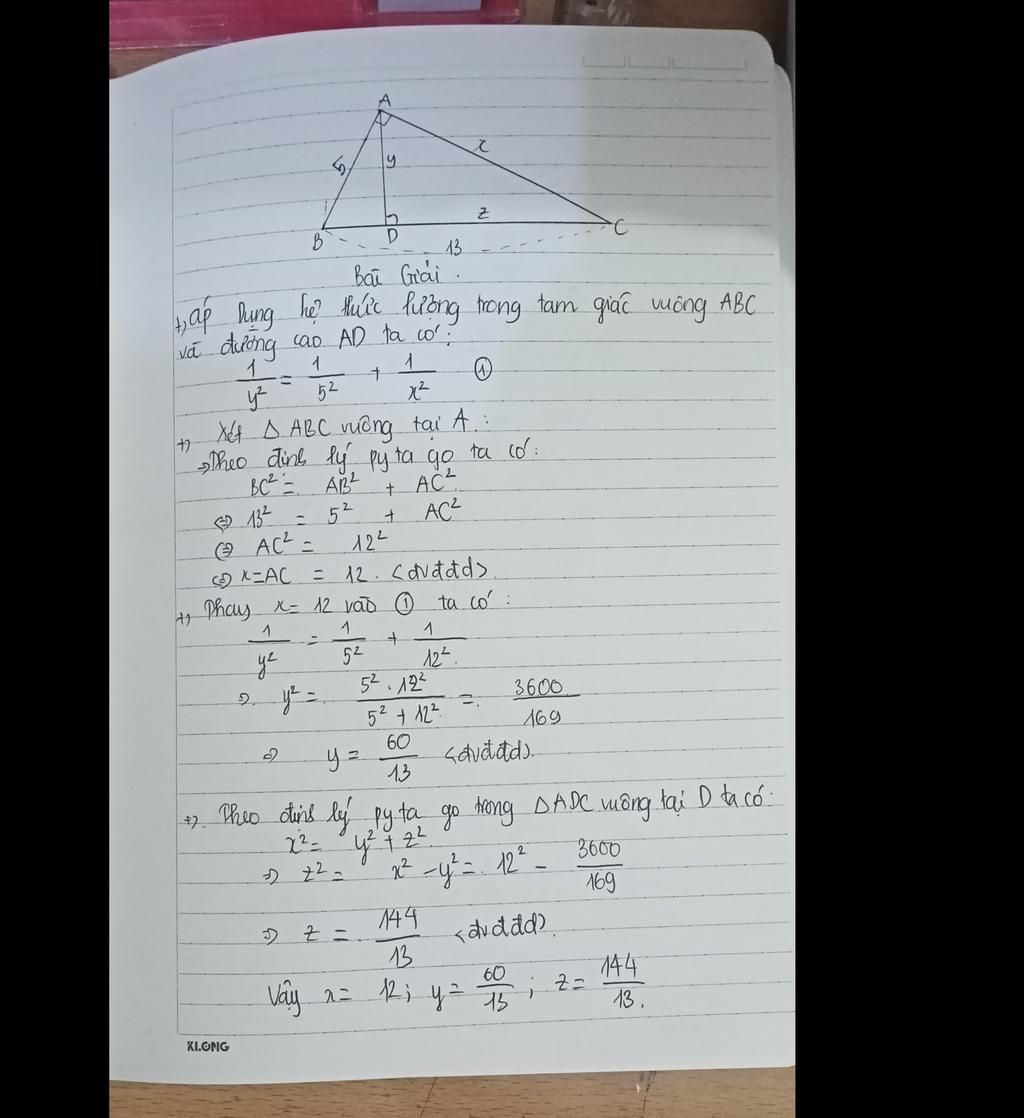 A
5
y
x
z
B
D
C
13
Bài Giải.
+, áp Dụng hệ thức lượng trong tam giác vuông ABC
và đường cao AD ta có:
1/y² = 1/5² + 1/x² ①
+, Xét Δ ABC vuông tại A:
→Theo định lý pytago ta có:
BC² = AB² + AC²
⇔ 13² = 5² + AC²
⇔ AC² = 12²
⇔ x=AC = 12. <đvđđd>
+, Thay x= 12 vào ① ta có:
1/y² = 1/5² + 1/12².
⇒ y² = 5².12²/5²+12² = 3600/169
⇒ y = 60/13 <đvđđd>.
+, Theo định lý pytago trong ΔADC vuông tại D ta có:
x² = y² + z².
⇒ z² = x² - y² = 12² - 3600/169
⇒ z = 144/13 <đvđđd>.
Vậy x= 12; y= 60/13; z= 144/13.
KLONG